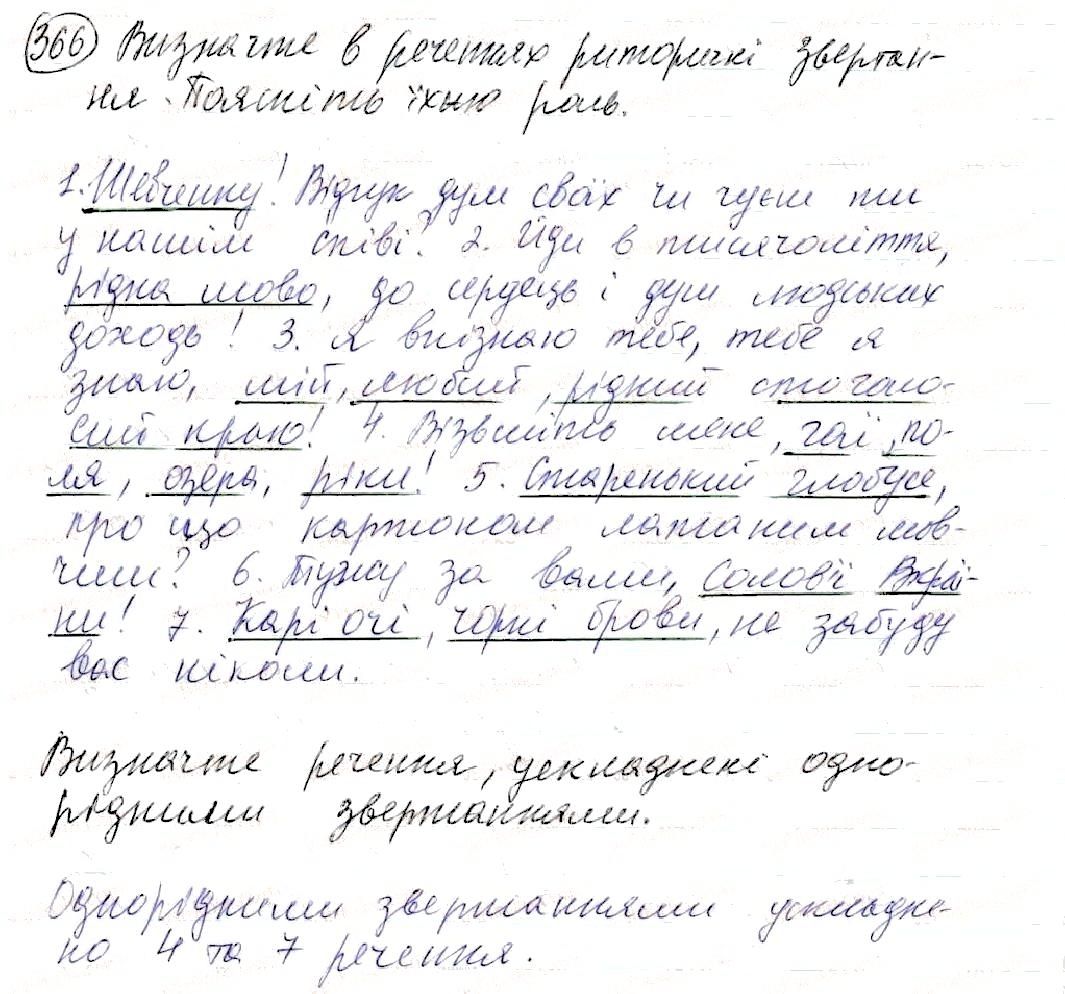 366 Визначте в реченнях риторичні звертан-
ня. Поясніть їхню роль.
1. Шевченку! Відгук дум своїх чи чуєш ти
у нашім співі? 2. Йди в тисячоліття,
рідна мово, до сердець і душ людських
доходь! 3. Я впізнаю тебе, тебе я
знаю, мій, любий, рідний стоголо-
сий краю! 4. Візьміть мене, гаї, по-
ля, озера, ріки! 5. Старенький глобусе,
про що картоном латаним мов-
чиш? 6. Тужу за вами, солов'ї Вкраї-
ни! 7. Карі очі, чорні брови, не забуду
вас ніколи.
Визначте речення, ускладнені одно-
рідними звертаннями.
Однорідними звертаннями ускладне-
но 4 та 7 речення.